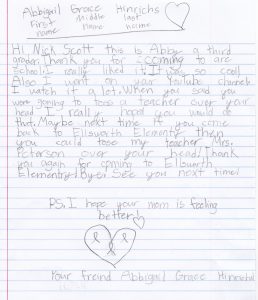 Abbigail Grace Hinrichs
First Middle last
name name name
Hi Nick Scott this is Abby a third
grader. Thank you for coming to are
school. I really liked it. It was so cool
Also I went on your Youtube channel.
I watch it a lot. When you said you
were going to toss a teacher over your
head I really hopd you would do
that. Maybe next time if you come
back to Ellsworth Elementry then
you could tose my teacher Mrs.
Peterson over your head. Thank
you again for coming to Ellsworth
Elementry. By
See you next time!
PS. I hope your mom is feeling
better
Your freind Abbigail Grace Hinrichs